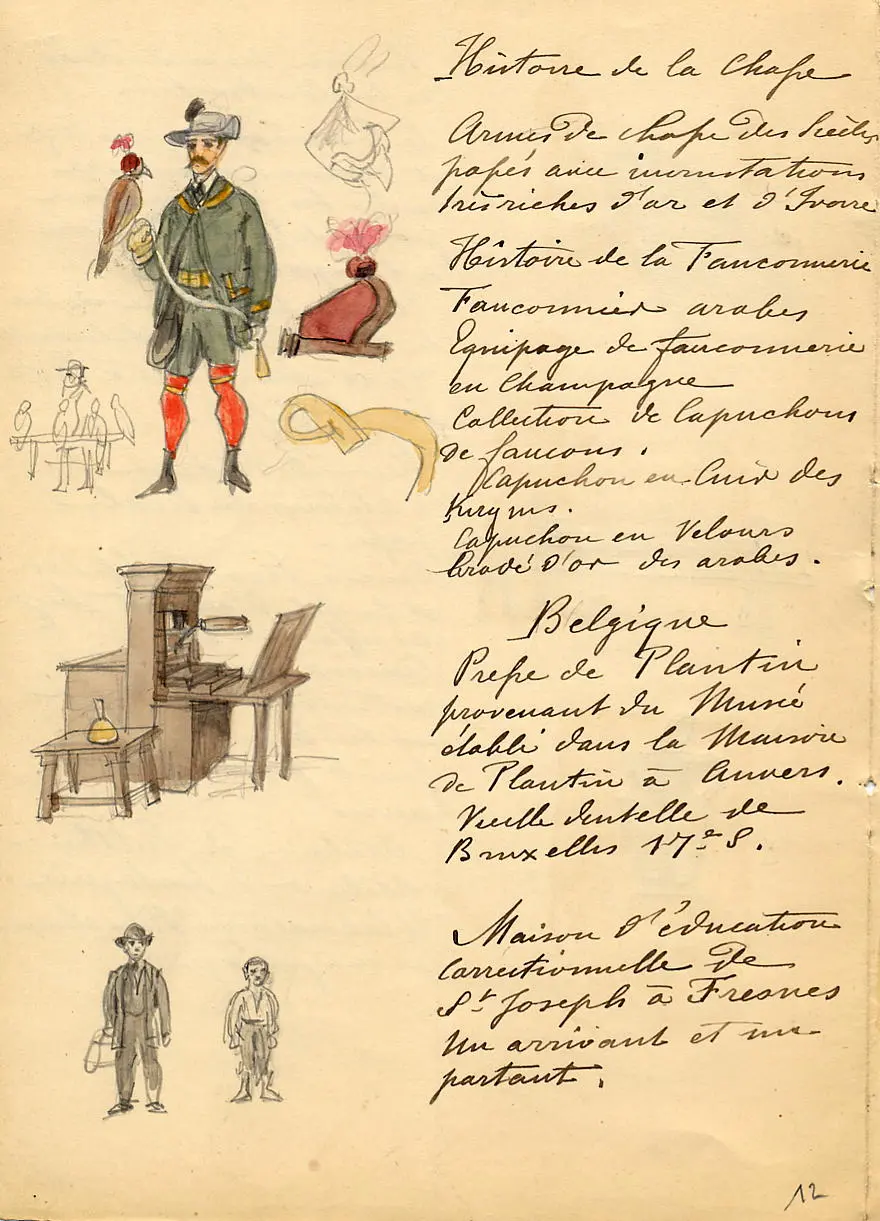 Histoire de la Chasse
Armes de chasse des Siècles
passés avec incrustations
très riches d'or et d'Ivoire
Histoire de la Fauconnerie
Fauconnier arabes
Equipage de fauconnerie
en Champagne
Collection de Capuchons
de faucons.
Capuchon en Cuir des
Capuchon en Velours
brodé d'or des arabes.
Belgique
Presse de Plantin
provenant du Musée
établi dans la Maison
de Plantin à Anvers.
Vieille dentelle de
Bruxelles 17e S.
Maison d'éducation
Correctionnelle de
St Joseph à Fresnes
Un arrivant et un
partant.
12